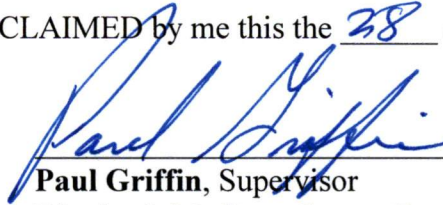 CLAIMED by me this the 28
Paul Griffin
Paul Griffin, Supervisor